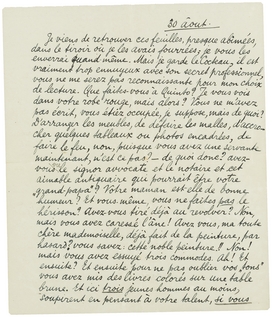 30 Août.
Je viens de retrouver ces feuilles, presque abîmées,
dans le tiroir où je les avais fourrées, je vous les
enverrai quand même. Mais je garde le cadeau, il est
vraiment trop ennuyeux avec son secret professionnel,
vous ne me serez pas reconnaissante pour mon choix
de lecture. Que faites-vous à Quinto? Je vous vois
dans votre robe rouge, mais alors? Vous ne m'avez
pas écrit, vous étiez occupée, je suppose, mais de quoi?
d'arranger les meubles, de défaire les malles, d'accro-
cher quelques tableaux ou photos encadrées, de
faire du feu, non, puisque vous avez une servante
maintenant, n'est ce pas? — de quoi donc? avez-
vous le signor avvocato, et le notaire et cet
aimable antiquaire qui pourrait être votre
grand papa? Votre maman est elle de bonne
humeur? Et vous même, vous ne faites pas le
hérisson? Avez-vous tiré déjà au revolver? Non,
mais vous avez caressé l'âne! Avez vous, ma toute
chère mademoiselle, déjà fait de la peinture, par
hasard? vous savez: cette noble peinture!! Non!
mais vous avez essuyé trois commodes. Ah! Et
ensuite? Et ensuite pour ne pas oublier vos "tons"
vous avez mis des livres colorés sur une table
brune. Et ici trois jeunes hommes au moins,
soupirent en pensant à votre talent, si vous